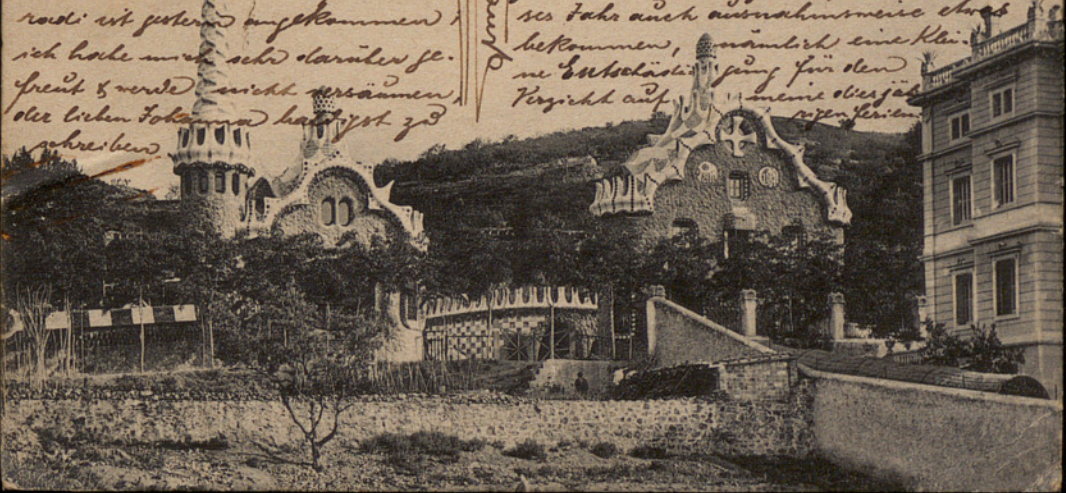 radi ist gestern angekommen,
ich habe mich sehr darüber ge-
freut & werde nicht versäumen,
der lieben Johanna baldigst zu
schreiben
ses Jahr auch ausnahmsweise etwas
bekommen, nämlich eine klei-
ne Entschädigung für den
Verzicht auf meine diesjäh-
rigen Ferien